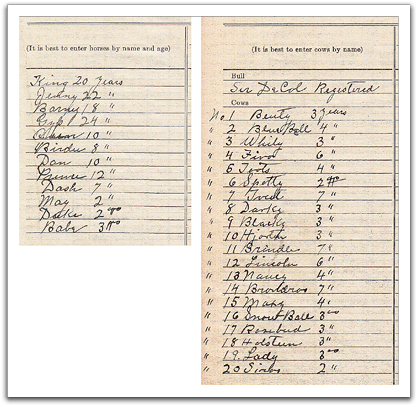 (It is best to enter horses by name and age)
King 20 years
Jenny 22 "
Barney 18 "
Gypt 24 "
10 "
Birdie 8 "
Dan 10 "
Prince 12 "
Dash 7 "
May 2 "
Duke 2
Babe 3
(It is best to enter cows by name)
Bull
Sir DeCol Registered
Cows
No. 1 Beuty 3 years
" 2 Blue Bell 4 "
" 3 Whity 3 "
" 4 6 "
" 5 Toots 4 "
" 6 Spotty 2
" 7 7 "
" 8 Darky 3 "
" 9 Blacky 3 "
" 10 3 "
" 11 Brindle 7 "
" 12 Lincoln 6 "
" 13 Nancy 4 "
" 14 7 "
" 15 Mary 4 "
" 16 Snow Ball 3
" 17 Rosebud 3 "
" 18 Holstein 3 "
" 19. Lady 3
" 20 2 "